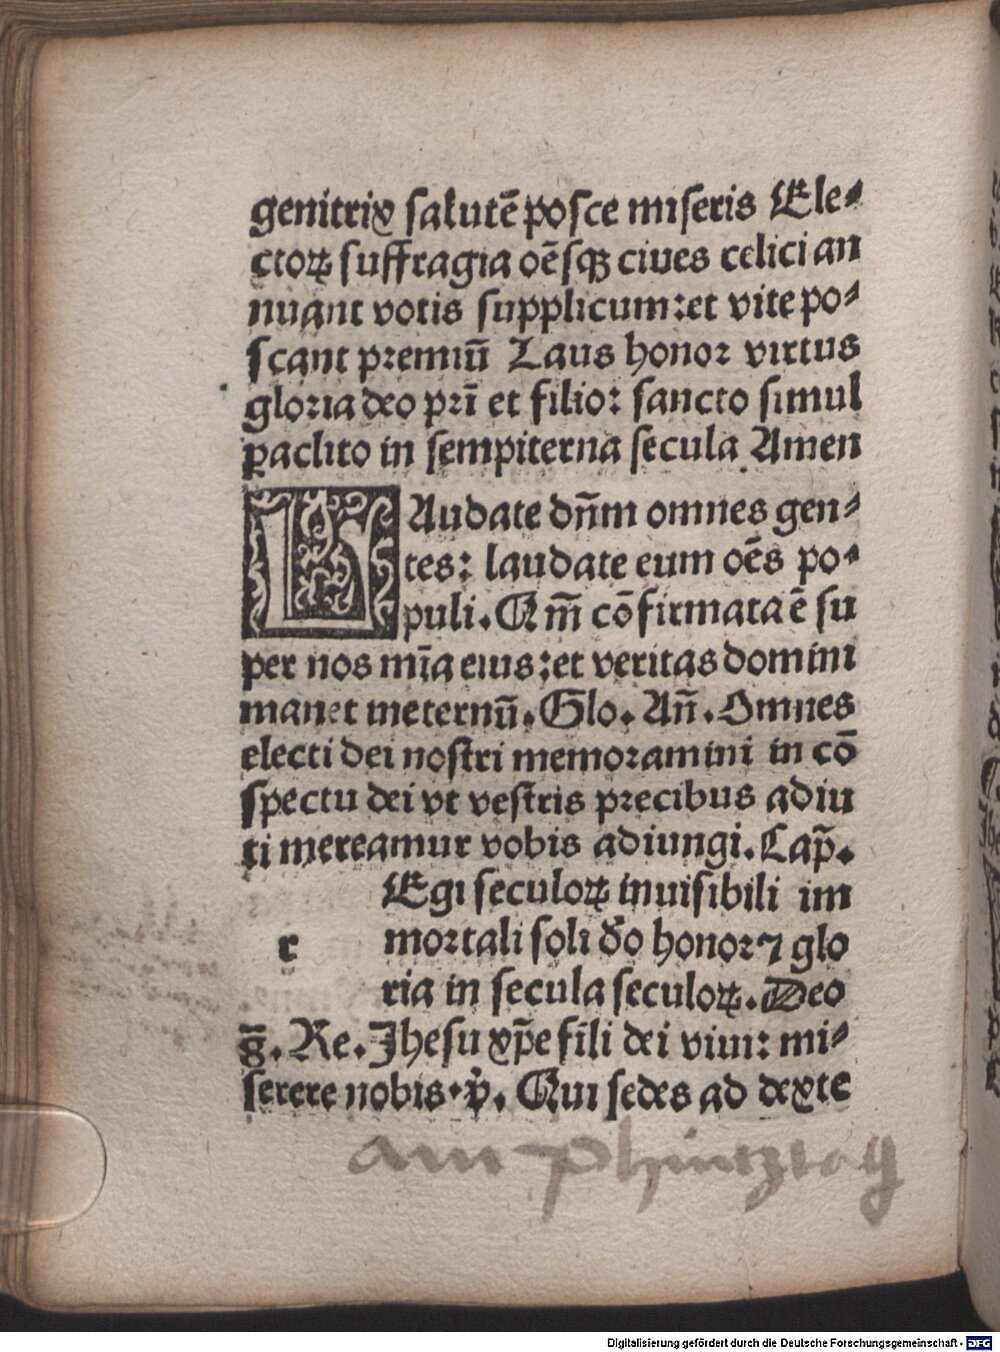 genitrix salutē posce miseris Ele⸗
ctoꝝ suffragia oēsqꝫ ciues celici an
nuant votis supplicum: et vite po⸗
scant premiū Laus honor virtus
gloria deo pr̄i et filio: sancto simul
ꝑaclito in sempiterna secula Amen
LAudate dn̄m omnes gen⸗
tes: laudate eum oēs po⸗
puli. Qm̄ cōfirmata ē su
per nos mīa eius: et veritas domini
manet ineternū. Glo. An̄. Omnes
electi dei nostri memoramini in cō
spectu dei vt vestris precibus adiu
ti mereamur vobis adiungi. Cap̄.
Egi seculoꝝ inuisibili im
r mortali soli do̅ honor ⁊ glo
ria in secula seculoꝝ. Deo
g̅. Re. Jhesu xp̄e fili dei viui: mi⸗
serere nobis. v̉. Qui sedes ad dexte
am phintztag
Digitalisierung gefördert durch die Deutsche Forschungsgemeinschaft - DFG